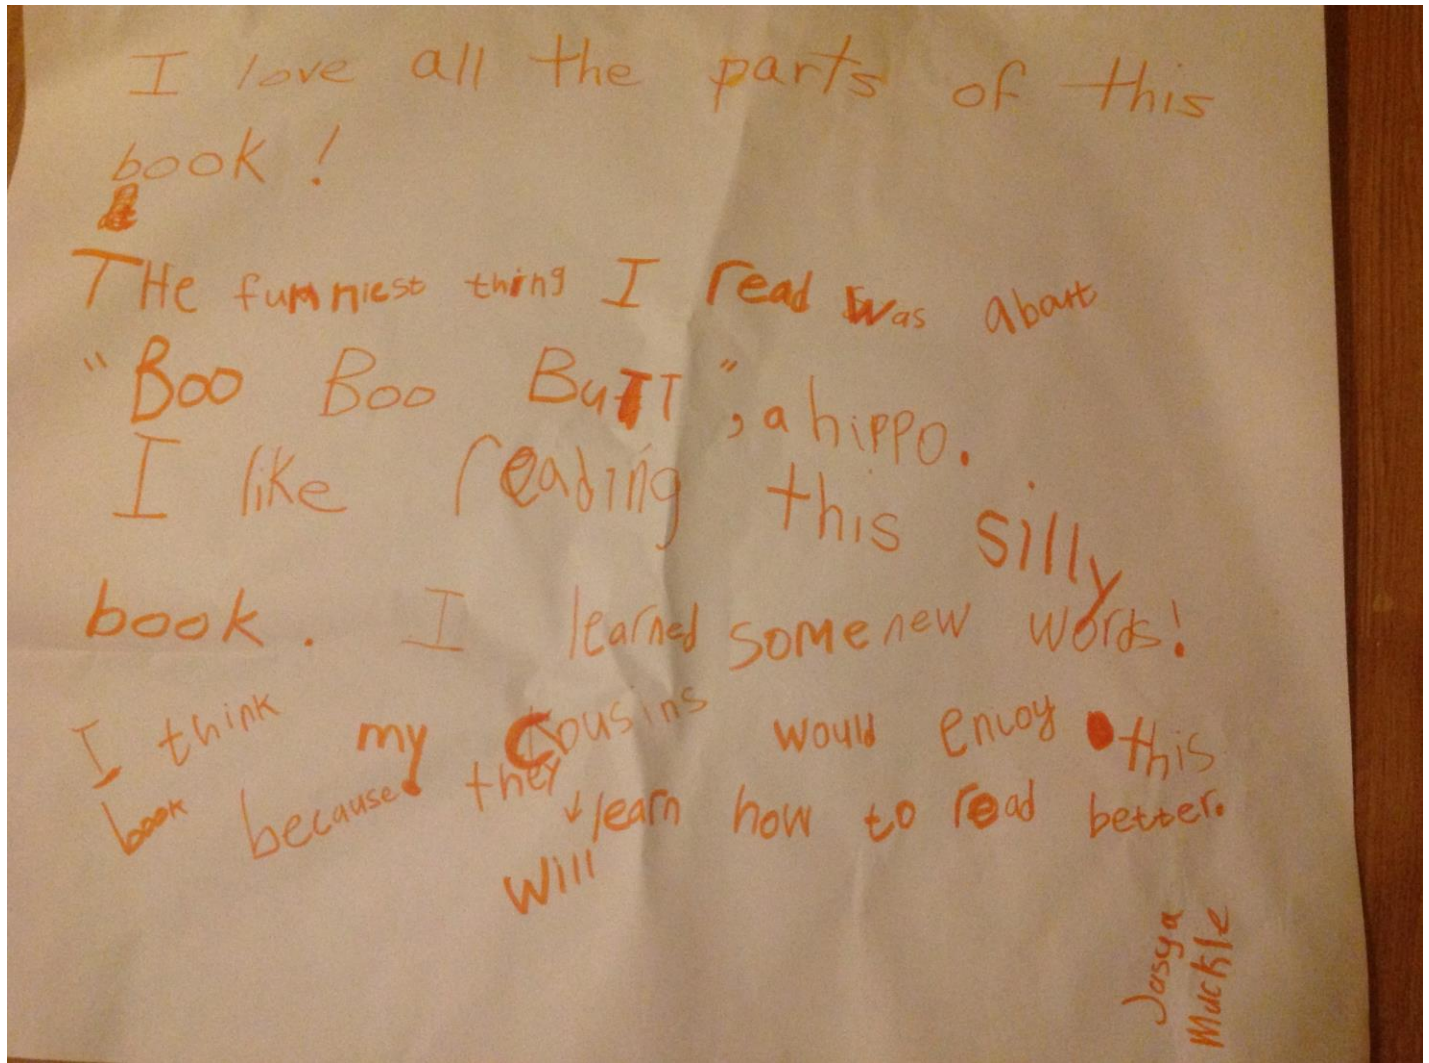 I love all the parts of this
book!
THe funniest thing I read was about
"Boo Boo BuTT", a hippo.
I like reading this silly
book. I learned some new words!
I think my Cousins would enjoy this
book because they learn how to read better.
will
Jasya
Muckle